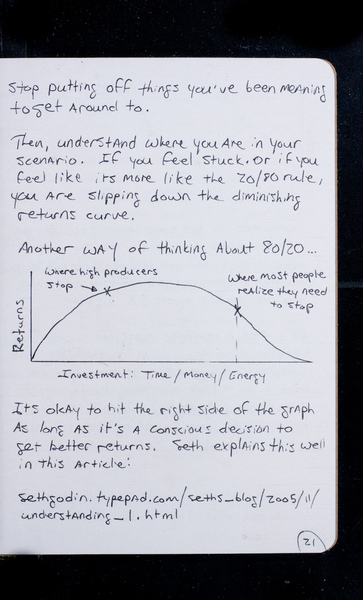 Stop putting off things you've been meaning
to get around to.
Then, understand where you are in your
scenario. If you feel stuck. or if you
feel like its more like the 20/80 rule,
you are slipping down the diminishing
returns curve.
Another way of thinking about 80/20...
where high producers
stop
where most people
realize they need
to stop
Returns
Investment: Time / Money / Energy
Its okay to hit the right side of the graph
as long as it's a conscious decision to
get better returns. Seth explains this well
in this article:
sethgodin.typepad.com/seths_blog/2005/11/
understanding_1.html
21